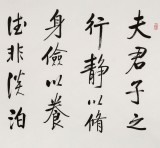 夫君子之
行静以脩
身儉以養
德非淡泊